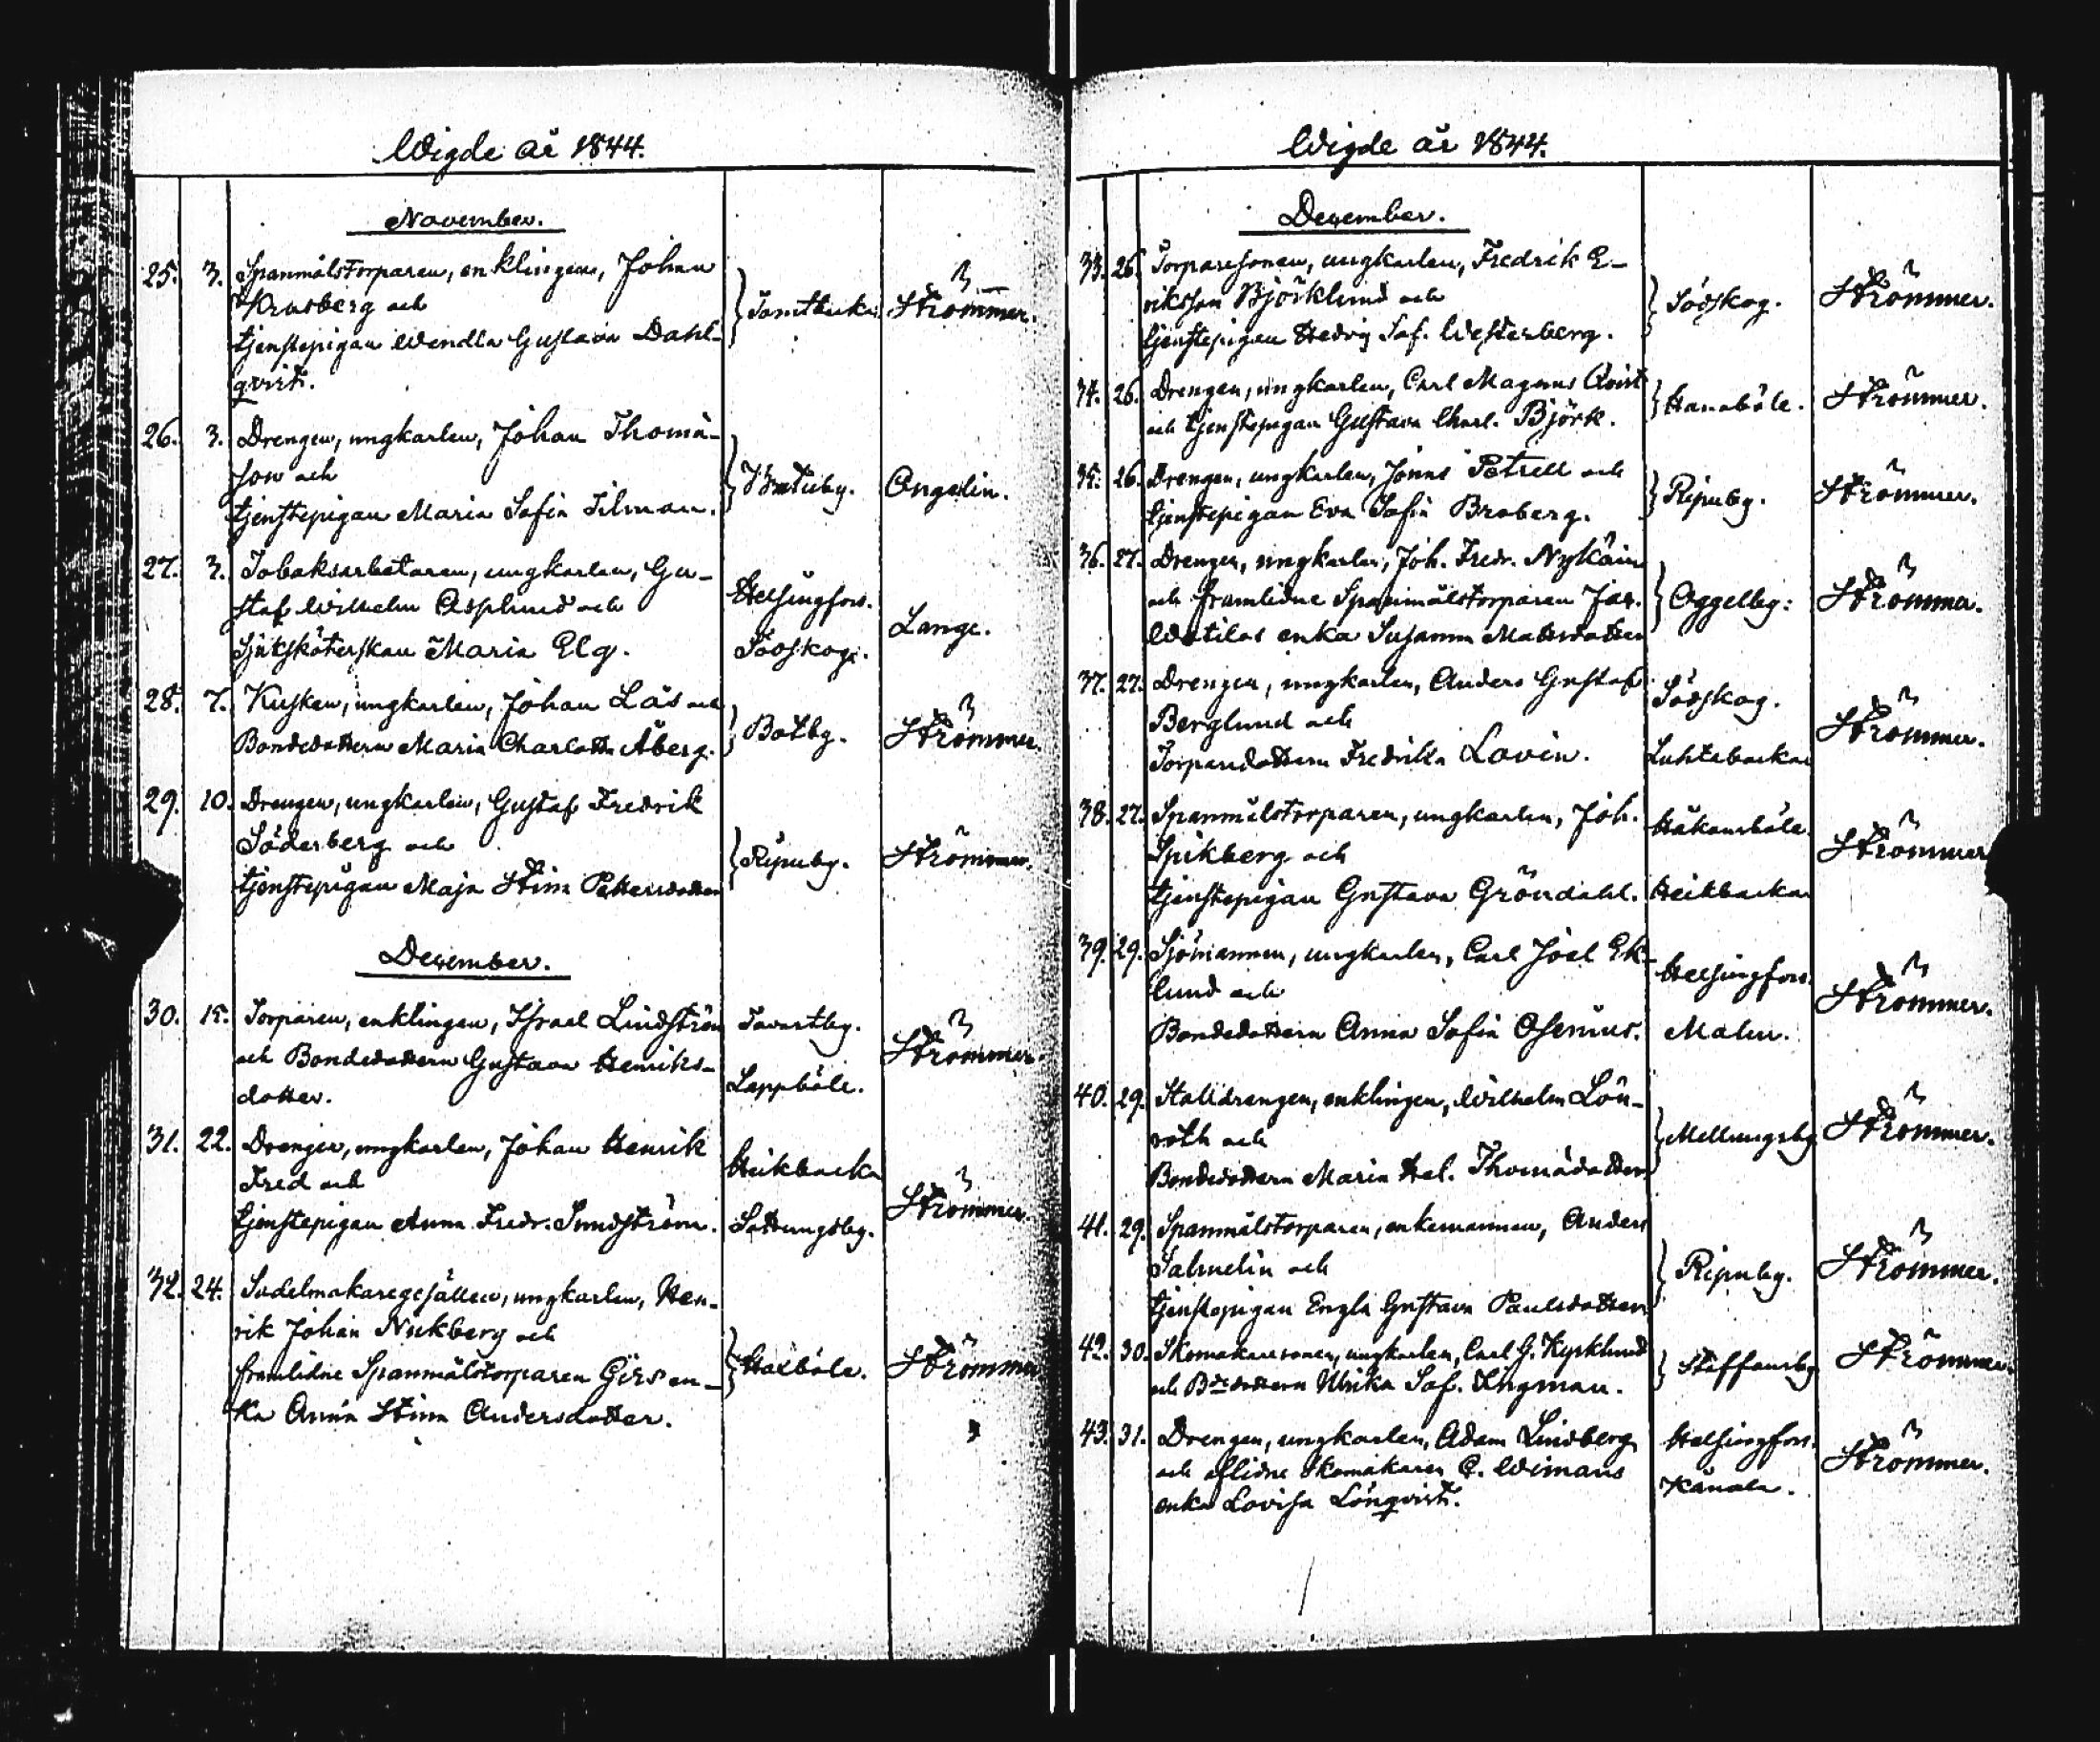 Wigde år 1844.
November.
25. 3. Spanmålstorparen, enklingen, Johan
Krusberg och
tjenstepigan Wendla Gustava Dahl-
qvist.
} Tomtbacka. Strömmer.
26. 3. Drengen, ungkarlen, Johan Thomä-
son och
tjenstepigan Maria Sofia Silman.
} Botuby. Angelin.
27. 3. Tobaksarbetaren, ungkarlen, Gu-
staf Wilhelm Asplund och
Sjuksköterskan Maria Elg.
Helsingfors.
Sódskog.
Lange.
28. 7. Kusken, ungkarlen, Johan Lås och
Bondedottern Maria Charlotta Åberg.
} Botby. Strömmer.
29. 10. Drengen, ungkarlen, Gustaf Fredrik
Söderberg och
tjenstepigan Maja Stina Pettersdotter
} Ripuby. Strömmer.
December.
30. 15. Torparen, enklingen, Israel Lindström
och Bondedottern Gustava Henriks-
dotter.
Tavastby.
Lappböle.
Strömmer.
31. 22. Drengen, ungkarlen, Johan Henrik
Fred och
tjenstepigan Anna Fredr. Sundström.
Heikbacka
Sottungsby.
Strömmer.
32. 24. Sadelmakaregesällen, ungkarlen, Hen-
rik Johan Nukberg och
framlidne Spanmålstorparen Girs en-
ka Anna Stina Andersdotter.
} Haxböle. Strömmer
Wigde år 1844.
December.
33. 26. Torparesonen, ungkarlen, Fredrik E-
riksson Björklund och
tjenstepigan Hedvig Sof. Westerberg.
} Sódskog. Strömmer.
34. 26. Drengen, ungkarlen, Carl Magnus Qvist
och tjenstepigan Gustava Charl. Björk.
} Hanaböle. Strömmer.
35. 26. Drengen, ungkarlen, Jonas Petrell och
tjenstepigan Eva Sofia Broberg.
} Ripuby. Strömmer.
36. 27. Drengen, ungkarlen, Joh. Fredr. Nykän
och framlidne Spanmålstorparen Jac.
Watilas enka Susanna Mattsdotter
} Oggelby: Strömmer.
37. 27. Drengen, ungkarlen, Anders Gustaf
Berglund och
Torparedottern Fredrika Lovin.
Sódskog.
Luhtabacka
Strömmer.
38. 27. Spanmålstorparen, ungkarlen, Joh.
Spikberg och
tjenstepigan Gustava Gröndahl.
Håkansböle.
Heikbacka
Strömmer
39. 29. Sjömannen, ungkarlen, Carl Joel Ek-
lund och
Bondedottern Anna Sofia Osenius.
Helsingfors.
Malm.
Strömmer.
40. 29. Stalldrengen, enklingen, Wilhelm Lön-
roth och
Bondedottern Maria Hel. Thomädotter
} Mellungsby Strömmer.
41. 29. Spanmålstorparen, enkemannen, Anders
Salmelin och
tjenstepigan Engla Gustava Paulsdotter
} Ripuby. Strömmer.
42. 30. Skomakaresonen, ungkarlen, Carl G. Kyrklund
och Bdedottern Ulrika Sof. Lingman.
} Staffansby Strömmer.
43. 31. Drengen, ungkarlen, Adam Lindberg
och aflidne Skomakaren C. Wimans
enka Lovisa Lönqvist.
Helsingfors.
Kånala.
Strömmer.